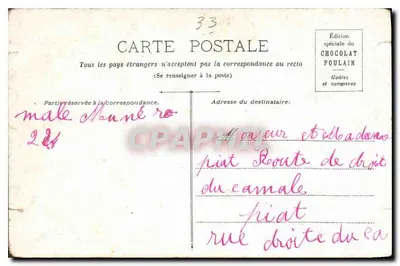 33
CARTE POSTALE
Tous les pays étrangers n'acceptent pas la correspondance au recto
(Se renseigner à la poste)
Édition
spéciale du
CHOCOLAT
POULAIN
Goûtez
et comparez
Partie réservée à la correspondance.
male Muné ro
221
Adresse du destinataire.
Monsieur et Madame
piat Route de droit
du camale
piat
rue droite du ca